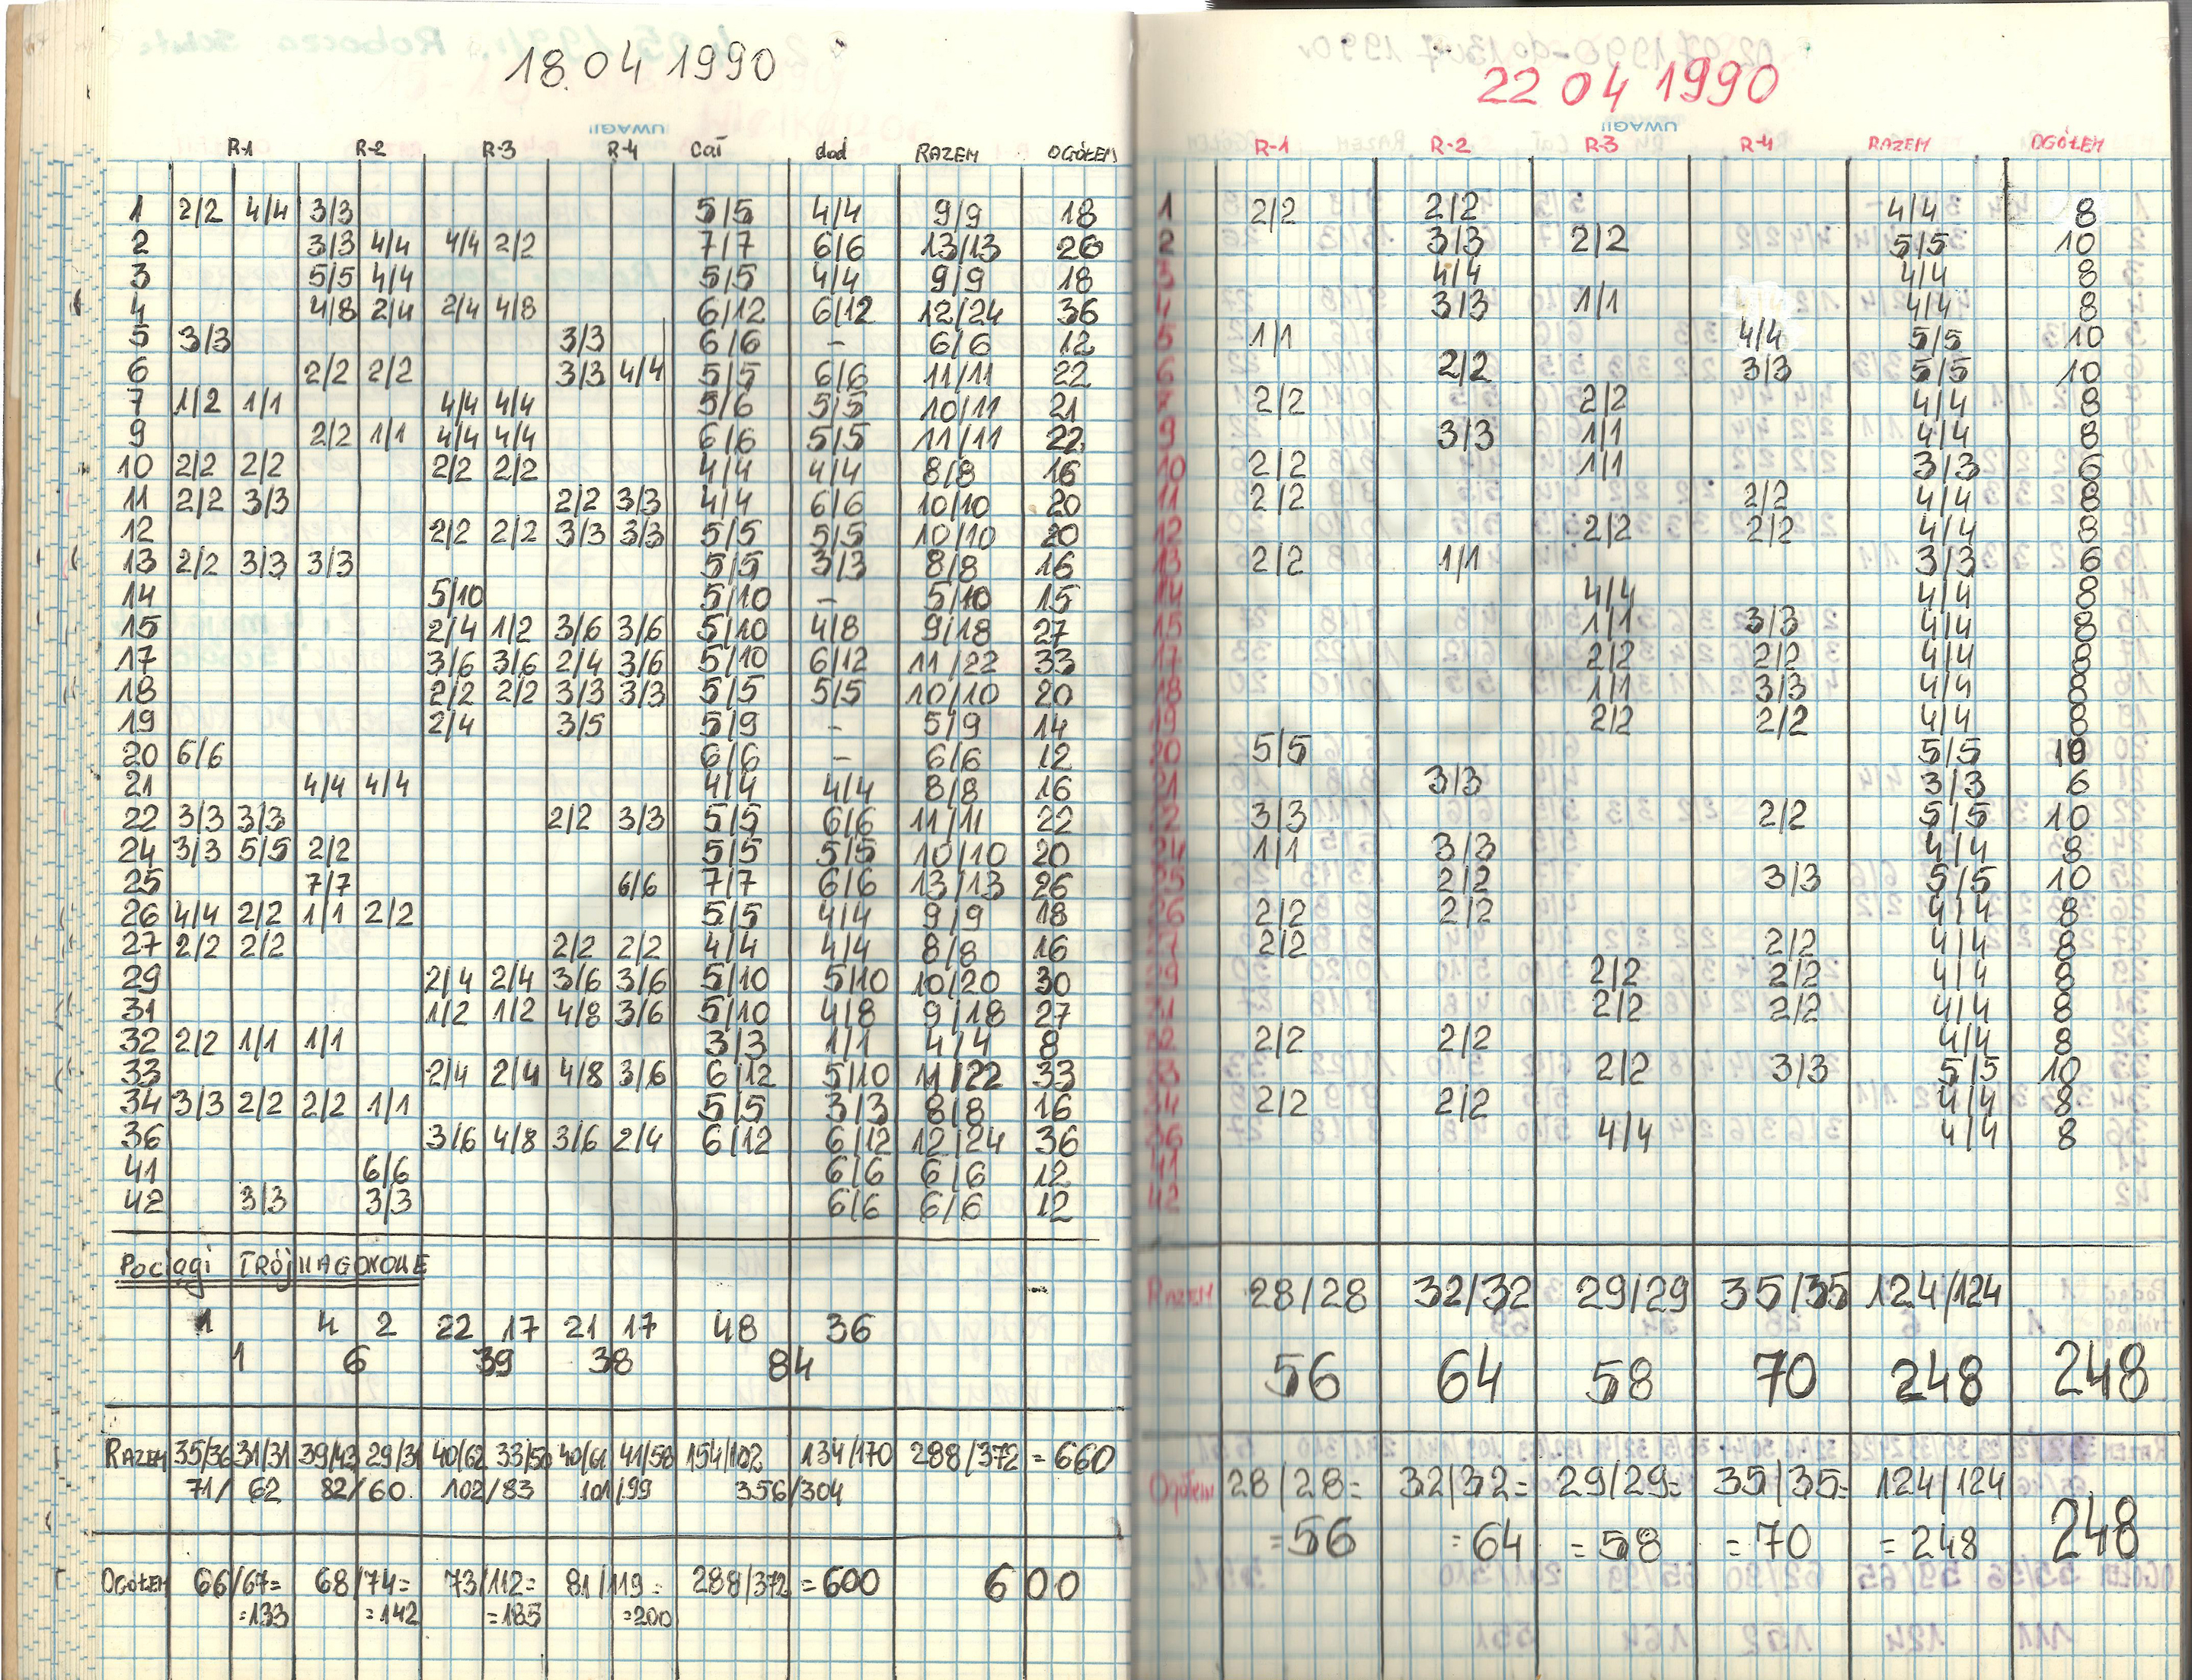 18.04 1990
UWAGI!
R-1 R-2 R-3 R-4 Cał dod RAZEM OGÓŁEM
1 2/2 4/4 3/3 5/5 4/4 9/9 18
2 3/3 4/4 4/4 2/2 7/7 6/6 13/13 26
3 5/5 4/4 5/5 4/4 9/9 18
4 4/8 2/4 2/4 4/8 6/12 6/12 12/24 36
5 3/3 3/3 6/6 – 6/6 12
6 2/2 2/2 3/3 4/4 5/5 6/6 11/11 22
7 1/2 1/1 4/4 4/4 5/6 5/5 10/11 21
9 2/2 1/1 4/4 4/4 6/6 5/5 11/11 22
10 2/2 2/2 2/2 2/2 4/4 4/4 8/8 16
11 2/2 3/3 2/2 3/3 4/4 6/6 10/10 20
12 2/2 2/2 3/3 3/3 5/5 5/5 10/10 20
13 2/2 3/3 3/3 5/5 3/3 8/8 16
14 5/10 5/10 – 5/10 15
15 2/4 1/2 3/6 3/6 5/10 4/8 9/18 27
17 3/6 3/6 2/4 3/6 5/10 6/12 11/22 33
18 2/2 2/2 3/3 3/3 5/5 5/5 10/10 20
19 2/4 3/5 5/9 – 5/9 14
20 6/6 6/6 – 6/6 12
21 4/4 4/4 4/4 4/4 8/8 16
22 3/3 3/3 2/2 3/3 5/5 6/6 11/11 22
24 3/3 5/5 2/2 5/5 5/5 10/10 20
25 7/7 6/6 7/7 6/6 13/13 26
26 4/4 2/2 1/1 2/2 5/5 4/4 9/9 18
27 2/2 2/2 2/2 2/2 4/4 4/4 8/8 16
29 2/4 2/4 3/6 3/6 5/10 5/10 10/20 30
31 1/2 1/2 4/8 3/6 5/10 4/8 9/18 27
32 2/2 1/1 1/1 3/3 1/1 4/4 8
33 2/4 2/4 4/8 3/6 6/12 5/10 11/22 33
34 3/3 2/2 2/2 1/1 5/5 3/3 8/8 16
36 3/6 4/8 3/6 2/4 6/12 6/12 12/24 36
41 6/6 6/6 6/6 12
42 3/3 3/3 6/6 6/6 12
Pociągi TRÓJWAGONOWE
1 4 2 22 17 21 17 48 36
1 6 39 38 84
RAZEM 35/36 31/31 39/43 29/31 40/62 33/50 40/61 41/58 154/102 134/170 288/372 = 660
71/62 82/60 102/83 101/99 356/304
OGÓŁEM 66/67= 68/74= 73/112= 81/119= 288/372 = 600 600
=133 =142 =185 =200
22 04 1990
UWAGI!
R-1 R-2 R-3 R-4 RAZEM OGÓŁEM
1 2/2 2/2 4/4 8
2 3/3 2/2 5/5 10
3 4/4 4/4 8
4 3/3 1/1 4/4 8
5 1/1 4/4 5/5 10
6 2/2 3/3 5/5 10
7 2/2 2/2 4/4 8
9 3/3 1/1 4/4 8
10 2/2 1/1 3/3 6
11 2/2 2/2 4/4 8
12 2/2 2/2 4/4 8
13 2/2 1/1 3/3 6
14 4/4 4/4 8
15 1/1 3/3 4/4 8
17 2/2 2/2 4/4 8
18 1/1 3/3 4/4 8
19 2/2 2/2 4/4 8
20 5/5 5/5 10
21 3/3 3/3 6
22 3/3 2/2 5/5 10
24 1/1 3/3 4/4 8
25 2/2 3/3 5/5 10
26 2/2 2/2 4/4 8
27 2/2 2/2 4/4 8
29 2/2 2/2 4/4 8
31 2/2 2/2 4/4 8
32 2/2 2/2 4/4 8
33 2/2 3/3 5/5 10
34 2/2 2/2 4/4 8
36 4/4 4/4 8
41
42
RAZEM 28/28 32/32 29/29 35/35 124/124
56 64 58 70 248 248
Ogółem 28/28= 32/32= 29/29= 35/35= 124/124
=56 =64 =58 =70 =248 248